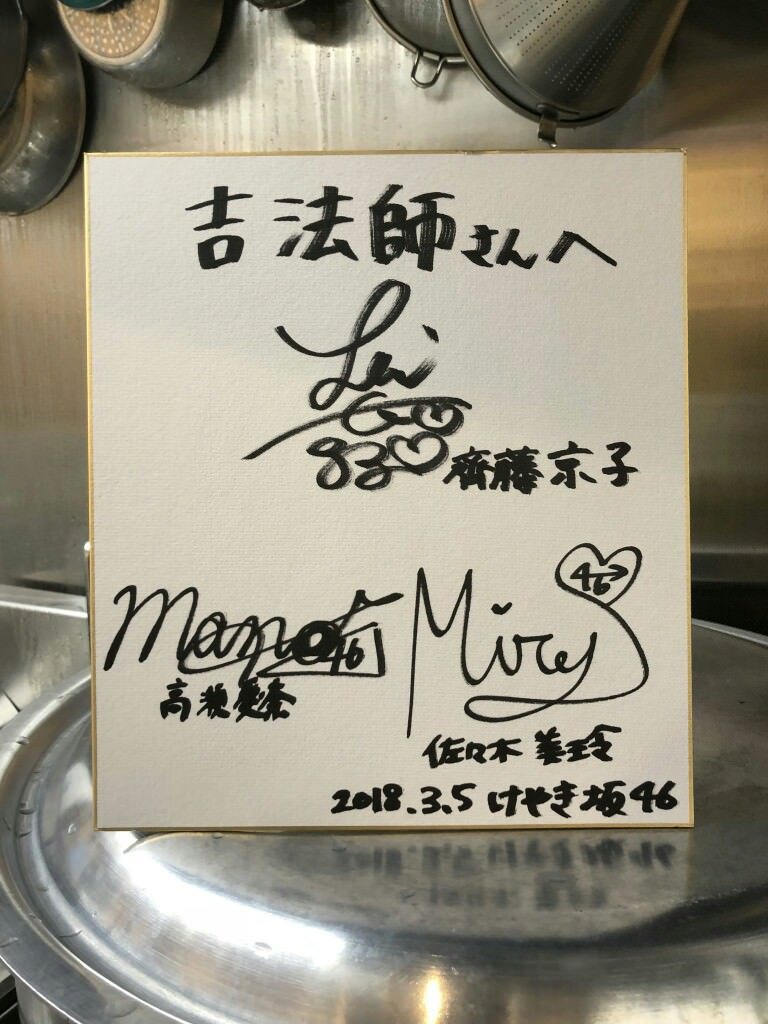 吉法師さんへ
齊藤京子
46
Manaf 46
Mirey
高瀬愛奈
佐々木美玲
2018.3.5 けやき坂46